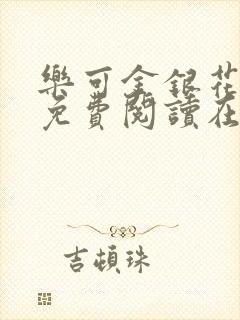 樂可金銀花
免費閱讀在
吉頓珠